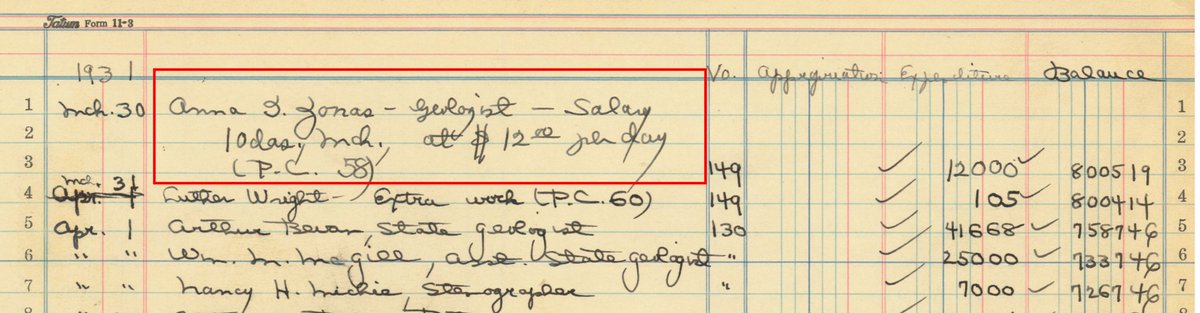 Tatum Form 11-3
1931 Vo. Appropriation Expenditure Balance
1 Mch. 30 Anna I. Jonas - Geologist - Salary 1
2 10 das. Mch., at $12.00 per day 2
3 (P.C. 58) 149 ✓ 12000 ✓ 800519 3
Mch. 31
4 Apr. 1 Luther Wright - Extra work (P.C. 60) 149 ✓ 105 ✓ 800414 4
5 Apr. 1 Arthur Bevan, State geologist 130 ✓ 41668 ✓ 758746 5
6 " " Wm. M. McGill, Asst. State geologist " ✓ 25000 ✓ 733746 6
7 " " Nancy H. Michie, Stenographer " ✓ 7000 ✓ 726746 7